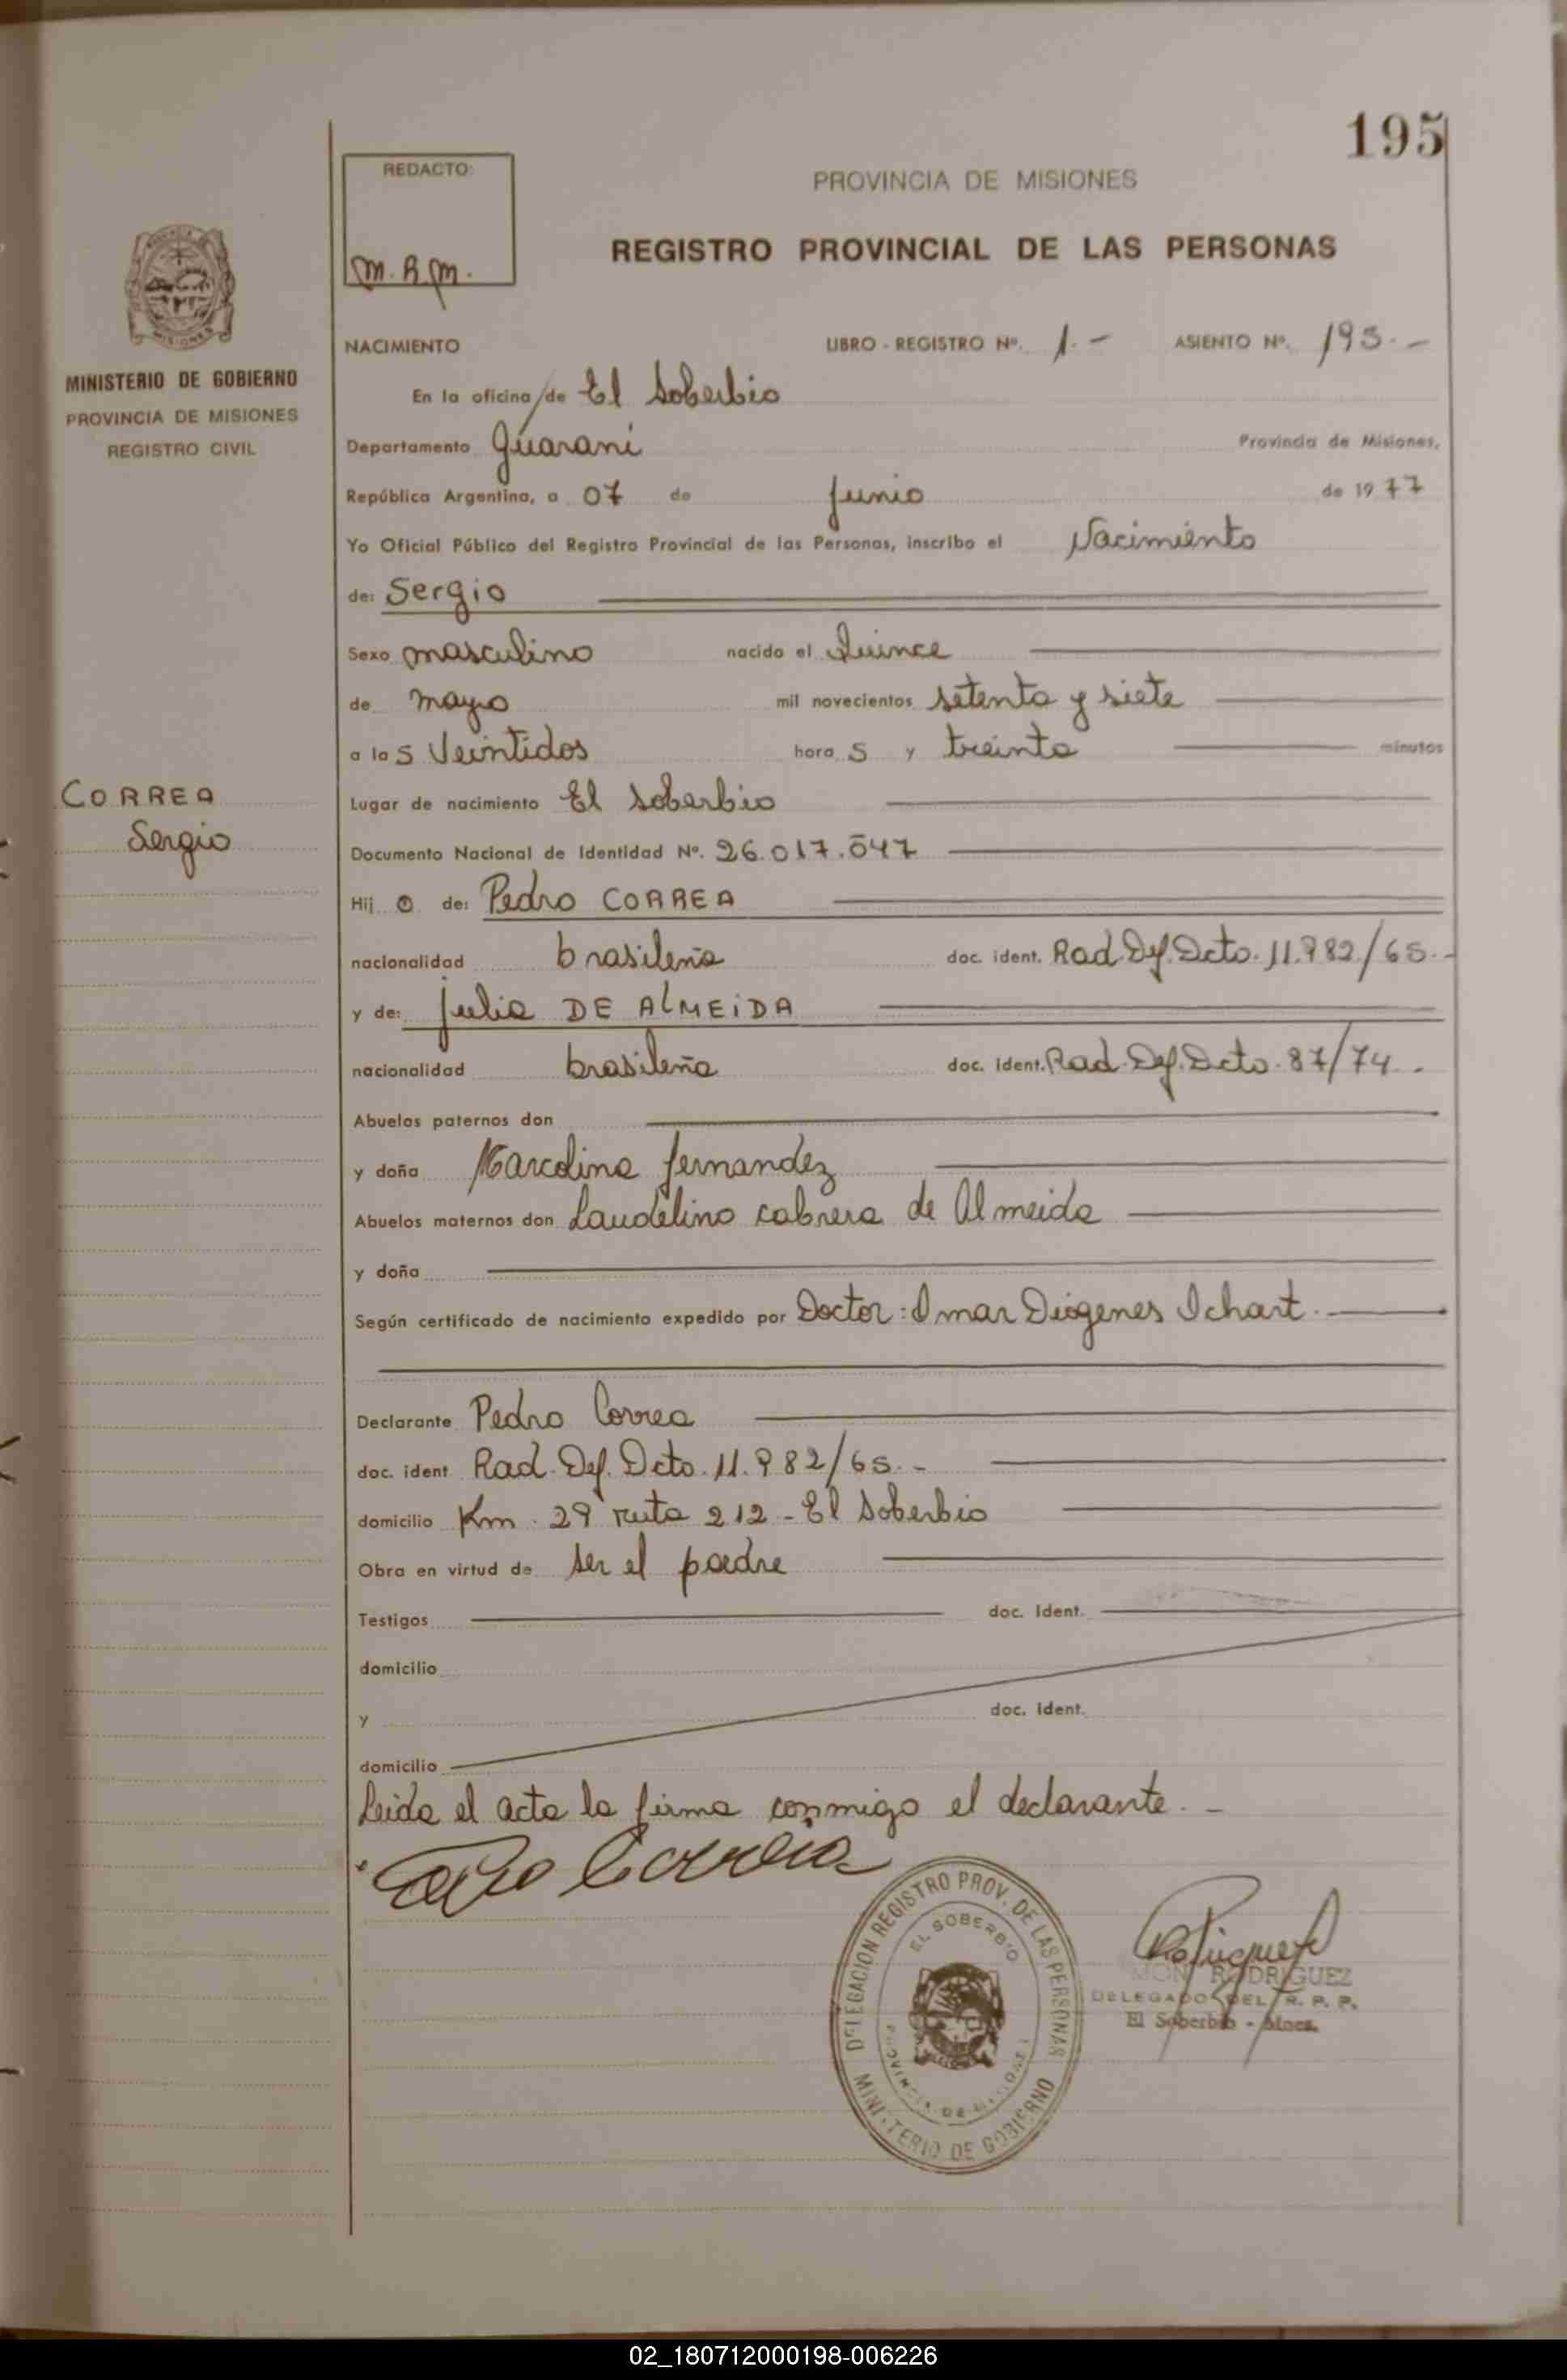 195
REDACTO:
M.R.M.
PROVINCIA DE MISIONES
REGISTRO PROVINCIAL DE LAS PERSONAS
MISIONES
MINISTERIO DE GOBIERNO
PROVINCIA DE MISIONES
REGISTRO CIVIL
CORREA
Sergio
NACIMIENTO LIBRO - REGISTRO Nº. 1.- ASIENTO Nº. 195.-
En la oficina de El Soberbio
Departamento Guaraní Provincia de Misiones,
República Argentina, a 07 de Junio de 1977
Yo Oficial Público del Registro Provincial de las Personas, inscribo el Nacimiento
de: Sergio
Sexo masculino nacido el Quince
de mayo mil novecientos setenta y siete
a las Veintidos horas y treinta minutos
Lugar de nacimiento El Soberbio
Documento Nacional de Identidad Nº. 26.017.047
Hijo de: Pedro CORREA
nacionalidad brasileña doc. ident. Rad. Def. Dcto. 11.982/65.-
y de: Julia DE ALMEIDA
nacionalidad brasileña doc. ident. Rad. Def. Dcto. 87/74.
Abuelos paternos don
y doña Marcolina Fernandez
Abuelos maternos don Laudelino cabrera de Almeida
y doña
Según certificado de nacimiento expedido por Doctor: Omar Diógenes Ichart.
Declarante Pedro Correa
doc. ident Rad. Def. Dcto. 11.982/65.-
domicilio Km. 29 ruta 212 - El Soberbio
Obra en virtud de ser el padre
Testigos doc. Ident.
domicilio
y doc. Ident.
domicilio
Leida el acta la firma conmigo el declarante.-
DELEGACION REGISTRO PROV. DE LAS PERSONAS
EL SOBERBIO
PROVINCIA DE MISIONES
MINISTERIO DE GOBIERNO
RODRIGUEZ
DELEGADO DEL R. P. P.
El Soberbio - Mnes.
02_180712000198-006226